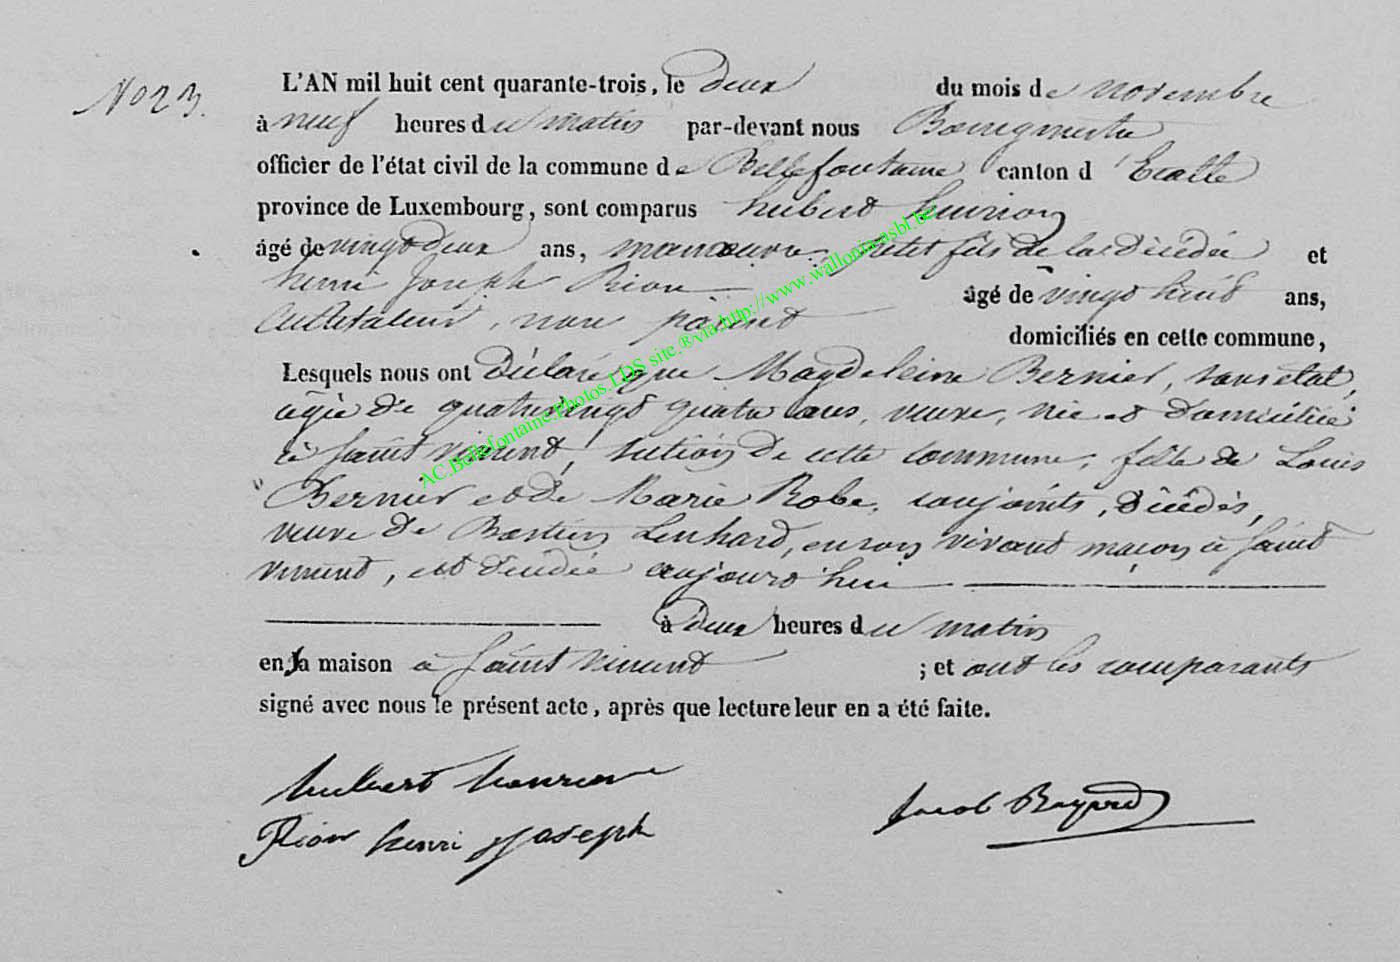 No 23.
L'AN mil huit cent quarante-trois, le deux du mois de novembre
à neuf heures du matin par-devant nous Bourgmestre
officier de l'état civil de la commune de Bellefontaine canton d'Etalle
province de Luxembourg, sont comparus hubert
âgé de vingt deux ans, manœuvre, petit fils de la décédée et
henri Joseph Rion âgé de vingt huit ans,
Cultivateur, non parent domiciliés en cette commune,
Lesquels nous ont Déclaré que Magdeleine Bernier, sans état,
âgée de quatrevingt quatre ans, veuve, née et domiciliée
à saint vincent, section de cette commune, fille de Louis
Bernier et de Marie Robe, conjoints, décédés,
veuve de Bastien Lenhard, en son vivant maçon à saint
vincent, est décédée aujourd'hui
à deux heures du matin
en sa maison à saint vincent ; et ont les comparants
signé avec nous le présent acte, après que lecture leur en a été faite.
hubert
Rion henri joseph
Jacob Bayard
AC.Bellefontaine.Photos.LDS site.®via.http://www.walloniaasbl.be